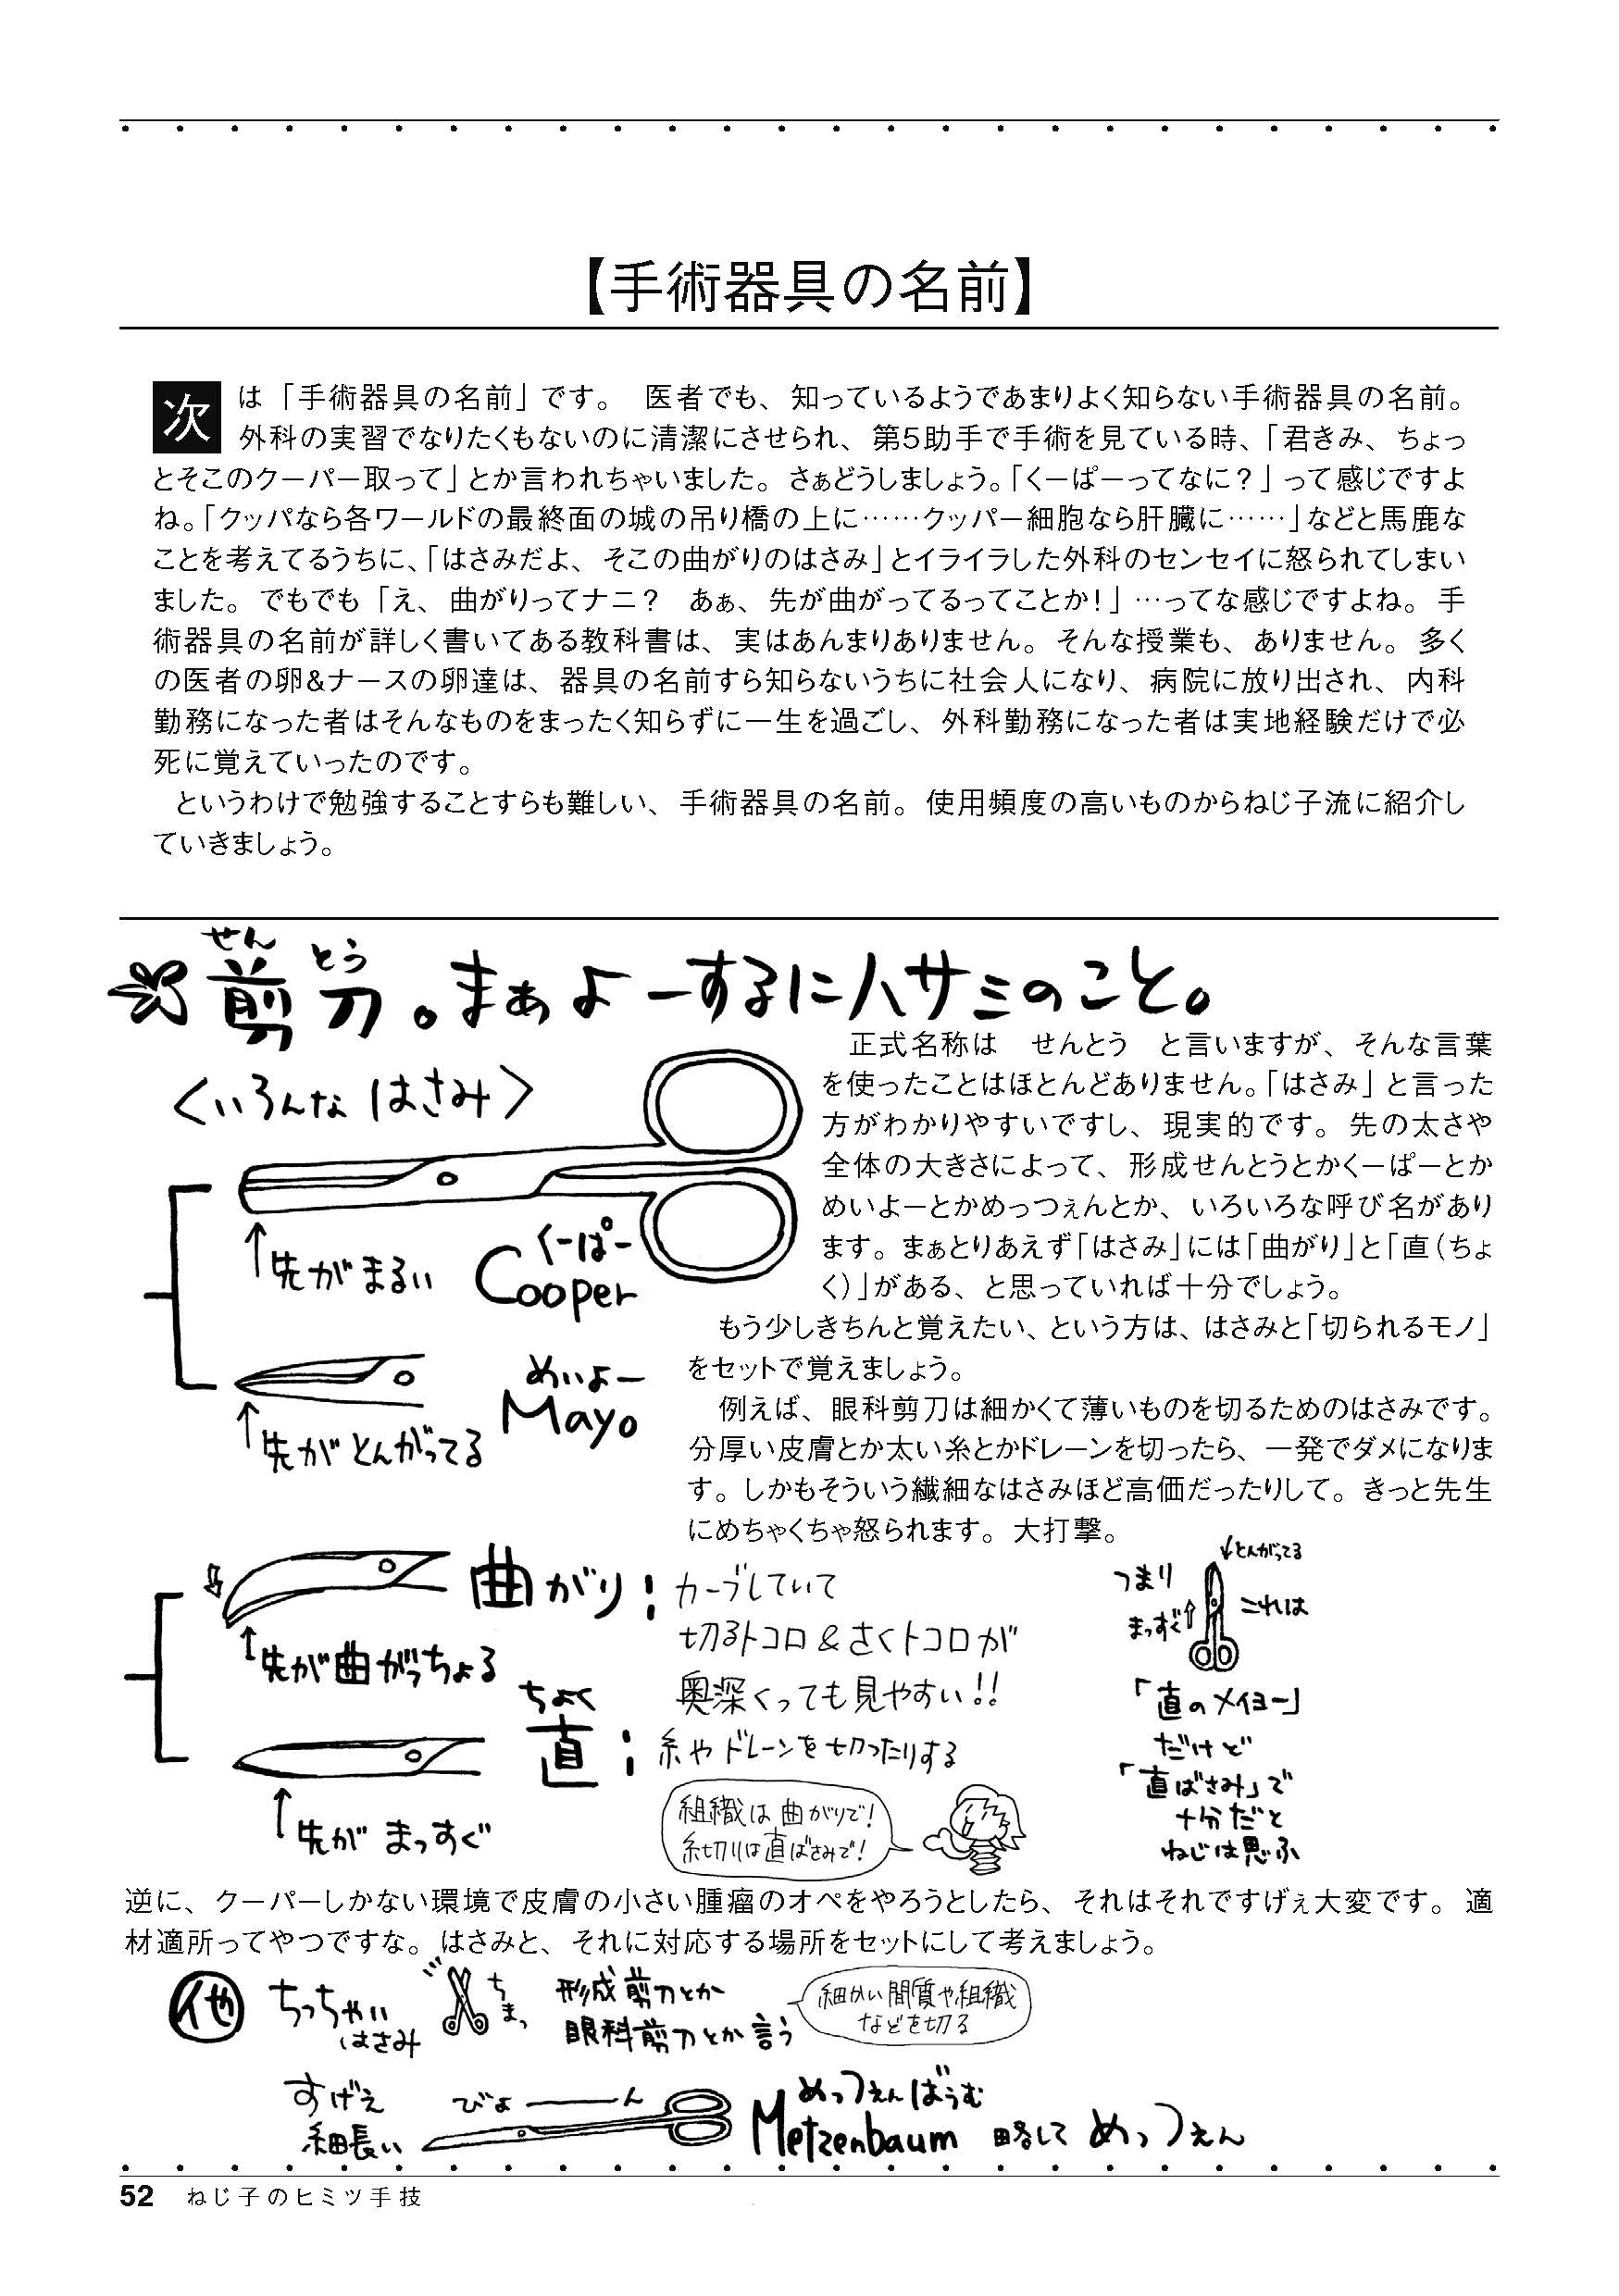 【手術器具の名前】
次は「手術器具の名前」です。　医者でも、知っているようであまりよく知らない手術器具の名前。
外科の実習でなりたくもないのに清潔にさせられ、第5助手で手術を見ている時、「君きみ、ちょっ
とそこのクーパー取って」とか言われちゃいました。さぁどうしましょう。「くーぱーってなに？」って感じですよ
ね。「クッパなら各ワールドの最終面の城の吊り橋の上に……クッパー細胞なら肝臓に……」などと馬鹿な
ことを考えてるうちに、「はさみだよ、そこの曲がりのはさみ」とイライラした外科のセンセイに怒られてしまい
ました。でもでも「え、曲がりってナニ？　あぁ、先が曲がってるってことか！」…ってな感じですよね。手
術器具の名前が詳しく書いてある教科書は、実はあんまりありません。そんな授業も、ありません。多く
の医者の卵&ナースの卵達は、器具の名前すら知らないうちに社会人になり、病院に放り出され、内科
勤務になった者はそんなものをまったく知らずに一生を過ごし、外科勤務になった者は実地経験だけで必
死に覚えていったのです。
　というわけで勉強することすらも難しい、手術器具の名前。使用頻度の高いものからねじ子流に紹介し
ていきましょう。
せん とう
剪刀。まぁよーするにハサミのこと。
＜いろんなはさみ＞
↑先がまるい
くーぱー
Cooper
↑先がとんがってる
めいよー
Mayo
　正式名称は　せんとう　と言いますが、そんな言葉
を使ったことはほとんどありません。「はさみ」と言った
方がわかりやすいですし、現実的です。先の太さや
全体の大きさによって、形成せんとうとかくーぱーとか
めいよーとかめっつぇんとか、いろいろな呼び名があり
ます。まぁとりあえず「はさみ」には「曲がり」と「直（ちょ
く）」がある、と思っていれば十分でしょう。
　もう少しきちんと覚えたい、という方は、はさみと「切られるモノ」
をセットで覚えましょう。
　例えば、眼科剪刀は細かくて薄いものを切るためのはさみです。
分厚い皮膚とか太い糸とかドレーンを切ったら、一発でダメになりま
す。しかもそういう繊細なはさみほど高価だったりして。きっと先生
にめちゃくちゃ怒られます。大打撃。
曲がり：カーブしていて
切るトコロ＆さくトコロが
奥深くっても見やすい!!
↑先が曲がっちょる
ちょく
直：糸やドレーンを切ったりする
↑先がまっすぐ
組織は曲がりで！
糸切りは直ばさみで！
↓とんがってる
つまり
まっすぐ↑
これは
「直のメイヨー」
だけど
「直ばさみ」で
十分だと
ねじは思ふ
逆に、クーパーしかない環境で皮膚の小さい腫瘤のオペをやろうとしたら、それはそれですげぇ大変です。適
材適所ってやつですな。はさみと、それに対応する場所をセットにして考えましょう。
他
ちっちゃい
はさみ
ちまっ
形成剪刀とか
眼科剪刀とか言う
細かい間質や組織
などを切る
すげえ
細長い
びよーーん
めっつぇんばうむ
Metzenbaum 略して めっつぇん
52　ねじ子のヒミツ手技